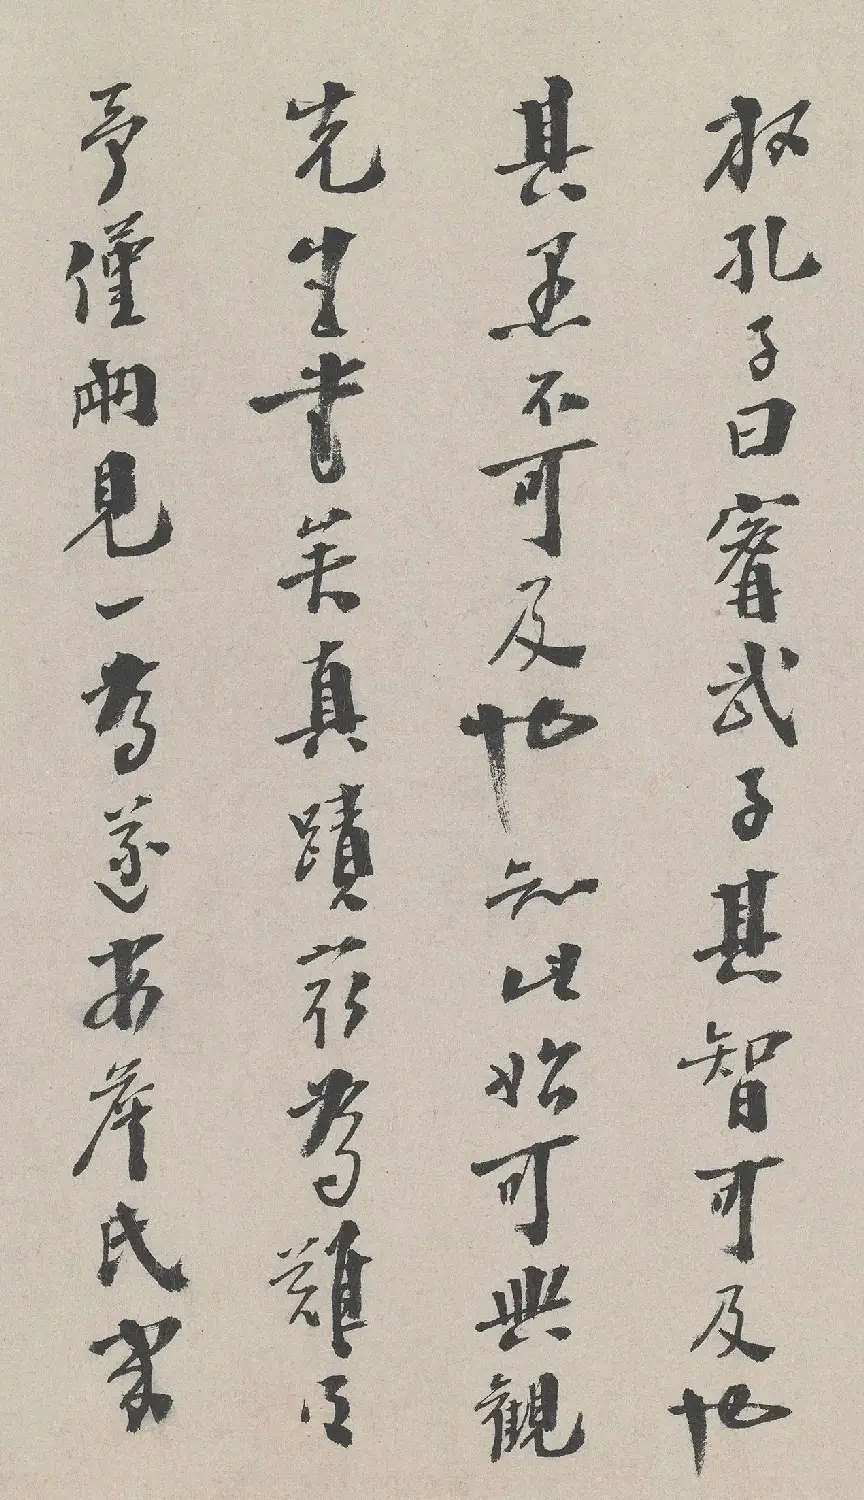 故孔子曰甯武子其智可及也
其愚不可及也知此始可與觀
先生書矣真蹟最為難得
予僅兩見一為遂安氏家